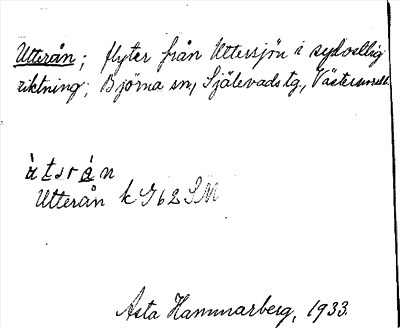 Utterån; flyter från Uttersjön i sydostlig
riktning; Björna sn, Själevads tg., Västernorrl.
ùtsrán
Utterån k J 62 SM
Asta Hammarberg, 1933.